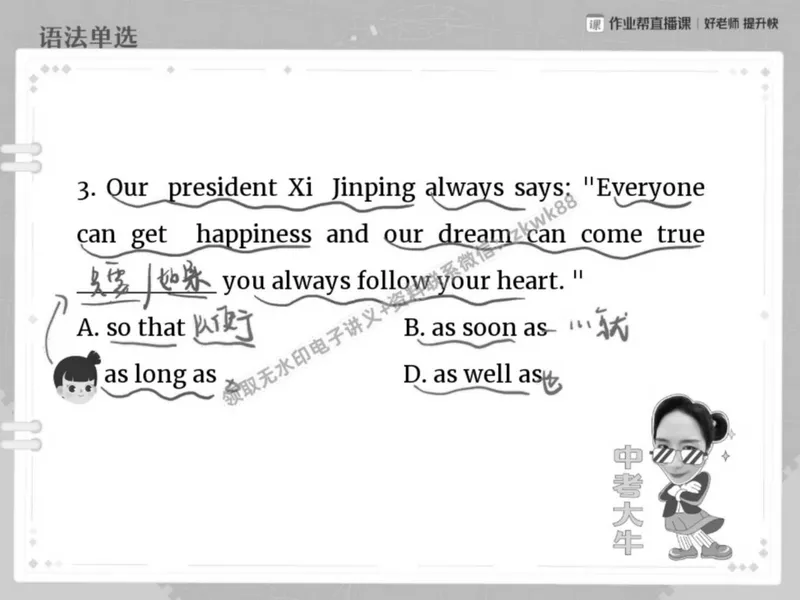 语法单选
课 作业帮直播课 | 好老师 提升快
3. Our president Xi Jinping always says: "Everyone
can get happiness and our dream can come true
只要 / 如果 you always follow your heart. "
A. so that 以便于
B. as soon as 一...就
as long as
D. as well as 也
领取无水印电子讲义+资料联系微信:zkwk88
中考大牛